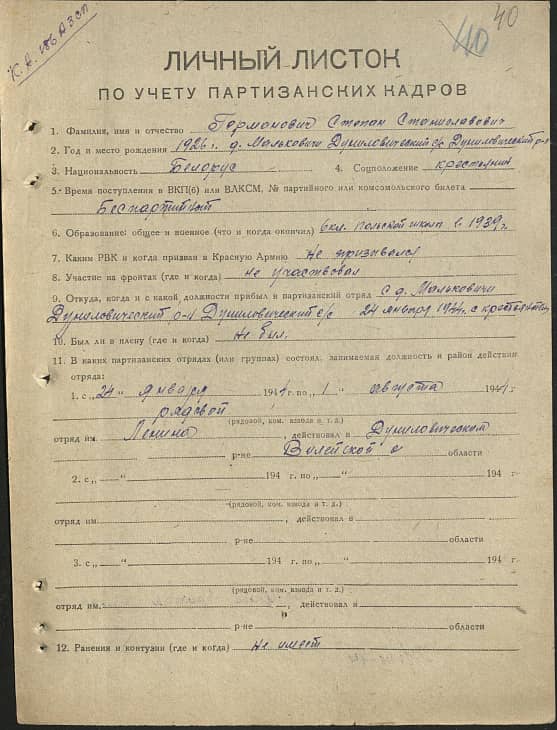 40
40
К. А. 186 АЗСП
ЛИЧНЫЙ ЛИСТОК
ПО УЧЕТУ ПАРТИЗАНСКИХ КАДРОВ
1. Фамилия, имя и отчество Германович Степан Станиславович
2. Год и место рождения 1926 г. д. Мальковичи Дуниловический с/с Дуниловический р-н
3. Национальность Белорус 4. Соцположение крестьянин
5. Время поступления в ВКП(б) или ВЛКСМ, № партийного или комсомольского билета
Беспартийный
6. Образование: общее и военное (что и когда окончил) 6 кл. польской школы в 1939 г.
7. Каким РВК и когда призван в Красную Армию Не призывался
8. Участие на фронтах (где и когда) не участвовал
9. Откуда, когда и с какой должности прибыл в партизанский отряд с д. Мальковичи
Дуниловический р-н Дуниловический с/с 24 января 1944 г. с
10. Был ли в плену (где и когда) Не был.
11. В каких партизанских отрядах (или группах) состоял, занимаемая должность и район действия
отряда:
1. с „24 “ января 1944 г. по „1 “ августа 1944 г.
рядовой
(рядовой, ком. взвода и т. д.)
отряд им. Ленина , действовал в Дуниловическом
р-не Вилейской о области
2. с „ “ 194 г. по „ “ 194 г.
(рядовой, ком. взвода и т. д.)
отряд им. , действовал в
р-не области
3. с „ “ 194 г. по „ “ 194 г.
(рядовой, ком. взвода и т. д.)
отряд им. , действовал в
р-не области
12. Ранения и контузии (где и когда) Не имеет